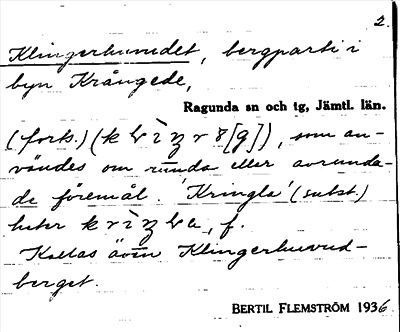 2.
Klingerhuvudet, bergparti i
byn Krångede,
Ragunda sn och tg, Jämtl. län.
(forts.) som an-
vändes om runda eller avrunda-
de föremål. 'Kringla' (subst.)
heter f.
Kallas även Klingerhuvud-
berget.
BERTIL FLEMSTRÖM 1936.